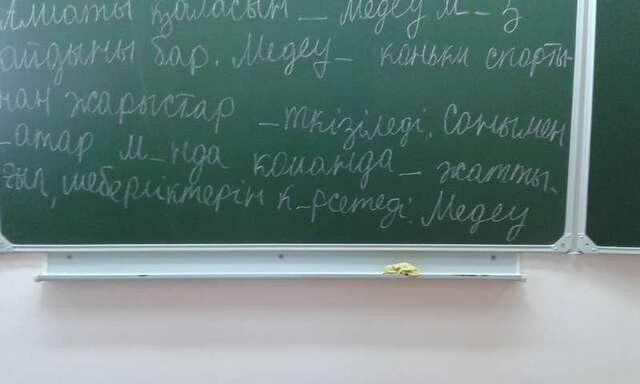 Алматы қаласын_ Медеу м_з
айдыны бар. Медеу_ коньки спорты-
нан жарыстар _ткізіледі. Сонымен
_атар м_нда команда_ жатты-
ғып, шеберліктерін к_рсетеді. Медеу